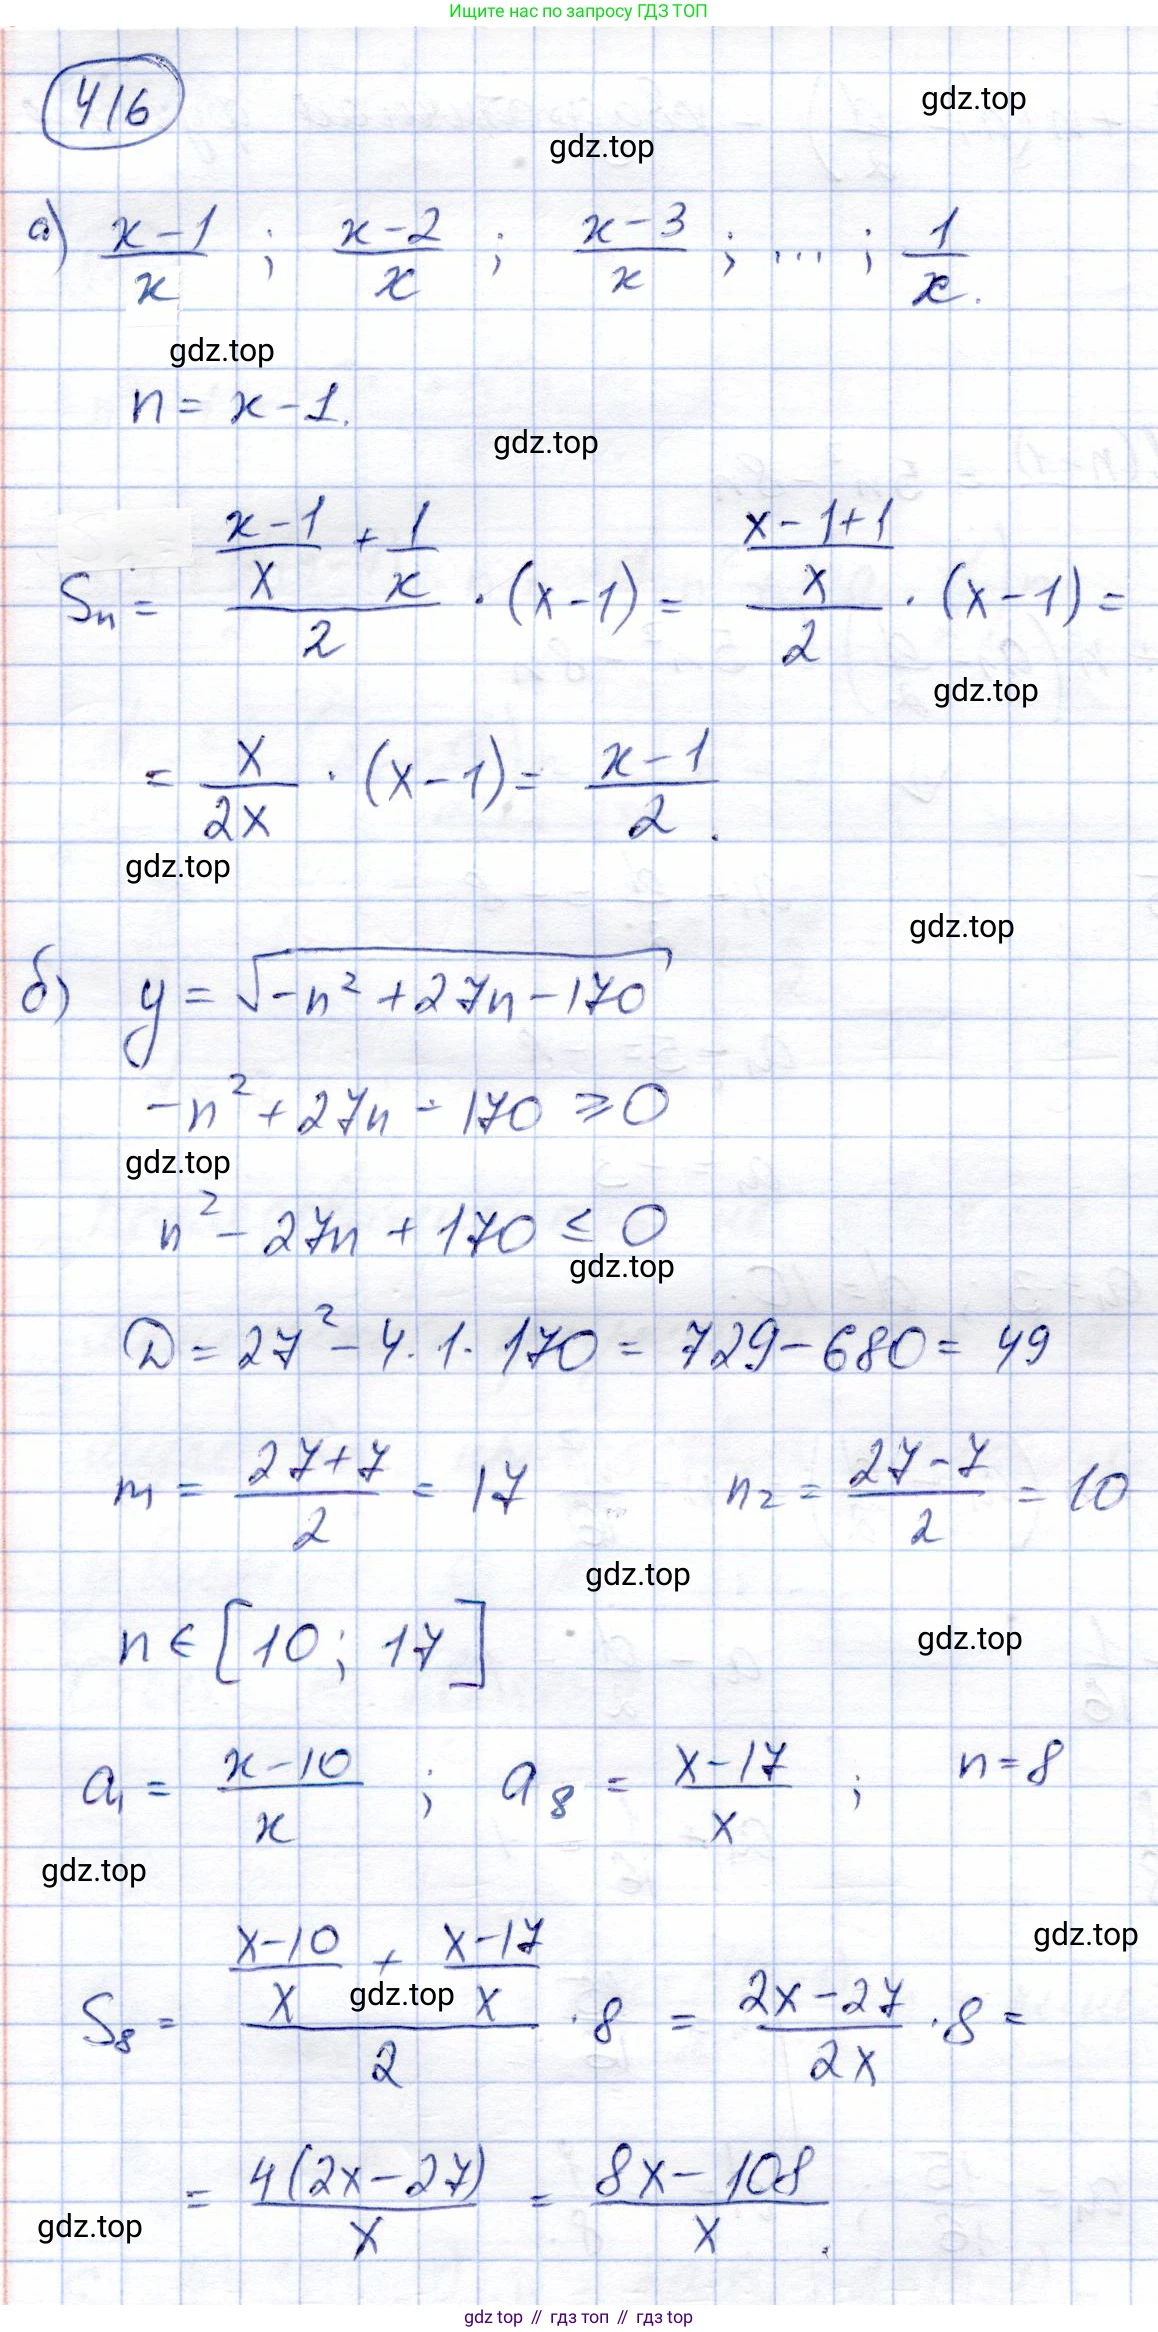 Ищите нас по запросу ГДЗ ТОП
416
gdz.top
gdz.top
а) (x-1)/x ; (x-2)/x ; (x-3)/x ; ... ; 1/x.
gdz.top
n = x-1.
gdz.top
Sn = ((x-1)/x + 1/x)/2 · (x-1) = ((x-1+1)/x)/2 · (x-1) =
gdz.top
= x/2x · (x-1) = (x-1)/2.
gdz.top
gdz.top
б) y = √(-n² + 27n - 170)
-n² + 27n - 170 ≥ 0
gdz.top
n² - 27n + 170 ≤ 0
gdz.top
D = 27² - 4·1·170 = 729 - 680 = 49
n₁ = (27+7)/2 = 17 n₂ = (27-7)/2 = 10
gdz.top
gdz.top
n ∈ [10; 17]
a₁ = (x-10)/x ; a₈ = (x-17)/x ; n = 8
gdz.top
gdz.top
gdz.top
S₈ = ((x-10)/x + (x-17)/x)/2 · 8 = (2x-27)/2x · 8 =
= 4(2x-27)/x = (8x-108)/x.
gdz.top
gdz top // гдз топ // гдз top